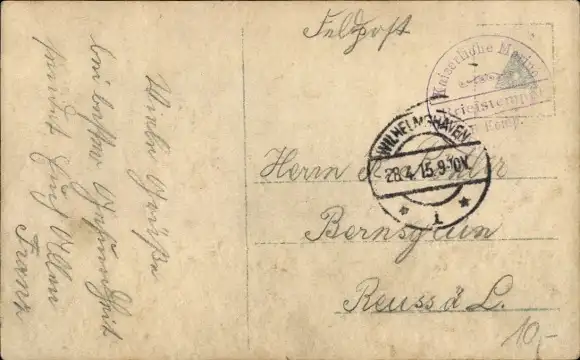 Feldpost
Kaiserliche Marine
Briefstempel
Komp.
WILHELMSHAVEN
28.4.15.9-10V.
* 1 *
Herrn
Bernsgrün
Reuss ä L.
10,-
Viele Grüße
bei bester Gesundheit
sendet Euch Allen
Franz